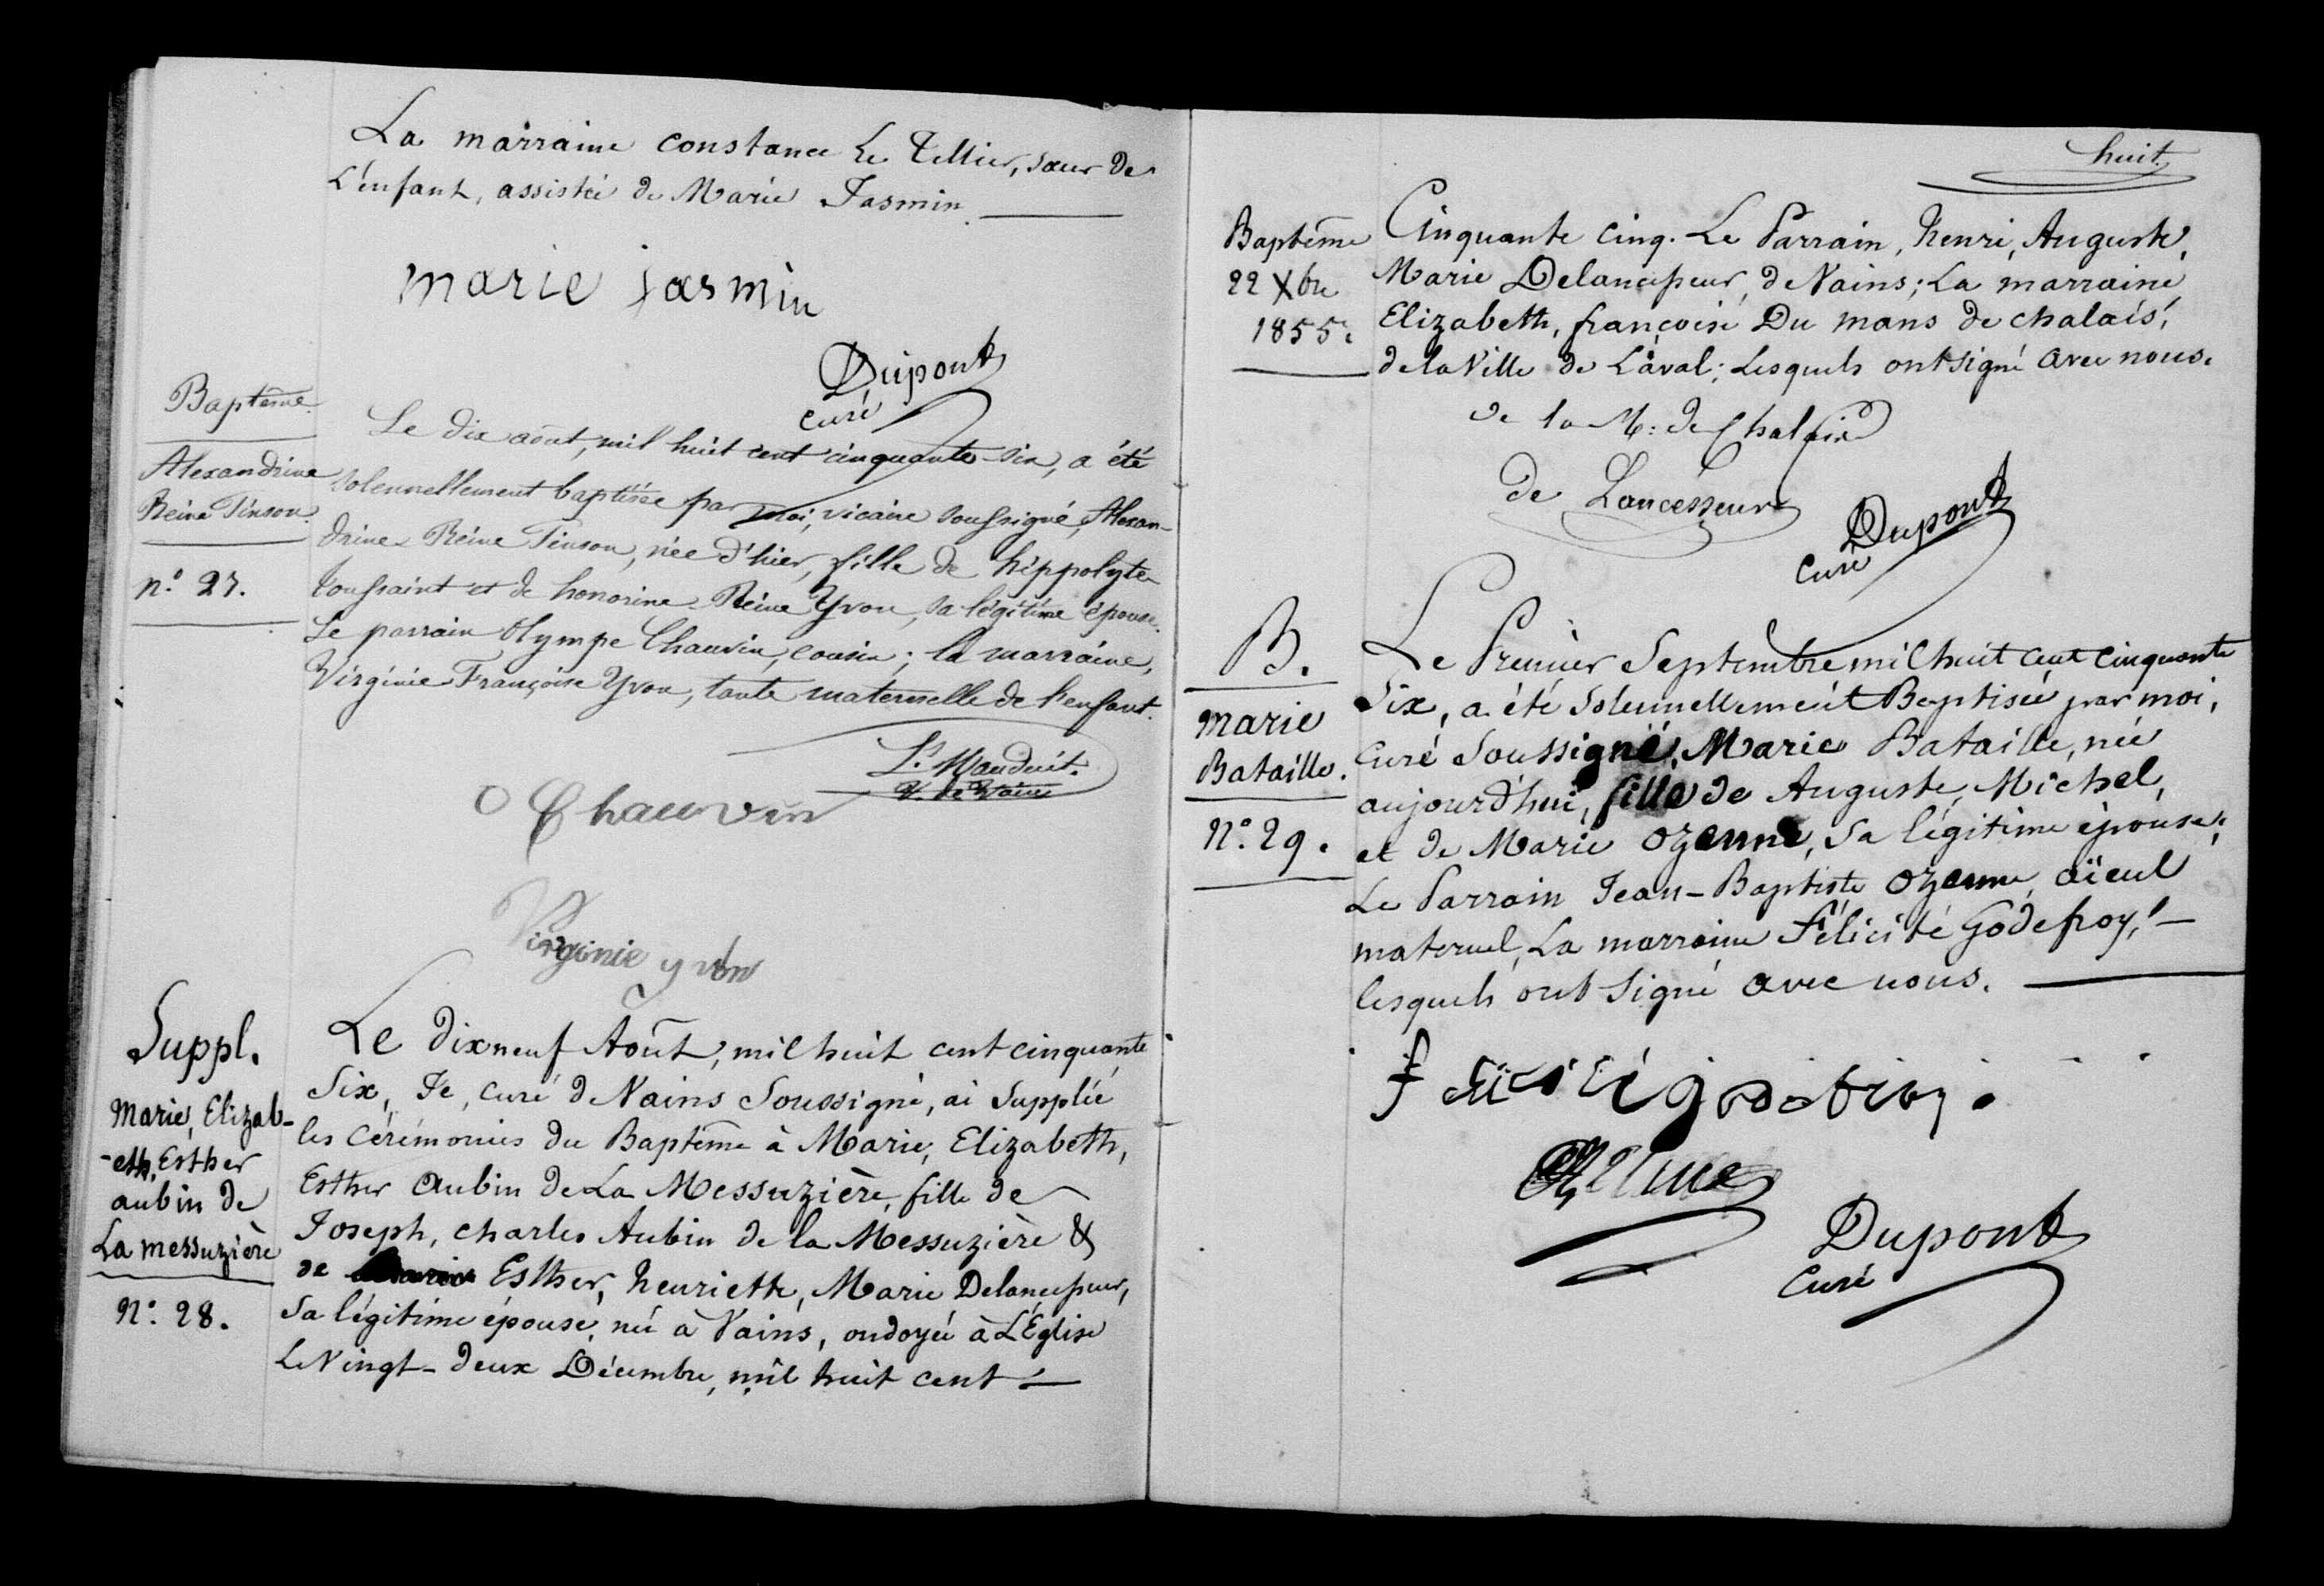 La marraine constance Le Tellier, sœur de
L'enfant, assistée de Marie Jasmin.
marie jasmin
Dupont
curé
Baptême.
Alexandrine
Reine Pinson.
n.º 27.
Le dix août, mil huit cent cinquante-six, a été
solennellement baptisée par moi, vicaire soussigné, Alexan-
drine Reine Pinson, née d'hier, fille de hippolyte-
Toussaint et de honorine Reine Yvon, sa légitime épouse.
Le parrain Olympe Chauvin, cousin; la marraine,
Virginie Françoise Yvon, tante maternelle de l'enfant.
L. Mauduit.
V. de Vains
O Chauvin
Virginie yvon
Suppl.
Marie, Elizab-
-eth, Esther
aubin de
La messuzière
N.º 28.
Le dix neuf Août, mil huit cent cinquante
Six, Je, curé de Vains Soussigné, ai Supplée
les cérémonies du Baptême à Marie, Elizabeth,
Esther Aubin de La Messuzière, fille de
Joseph, charles Aubin de la Messuzière &
de Esther, henriette, Marie Delancesseur,
Sa légitime épouse, née à Vains, ondoyée à L'Église
Le Vingt-deux Décembre, mil huit cent -
huit.
Baptême
22 Xbre
1855.
Cinquante cinq. Le Parrain, henri, Auguste,
Marie Delancesseur, de Vains; La marraine
Elizabeth, françoise Du mans de chalais,
de la Ville de Laval; Lesquels ont signé avec nous.
de la M: de Chalais
de Lancesseur
Dupont
curé
B.
marie
Bataille.
N.º 29.
Le Premier Septembre mil huit cent cinquante
Six, a été Solennellement Baptisée par moi,
Curé Soussigné, Marie Bataille, née
aujourd'hui, fille de Auguste, Michel,
et de Marie Ozenne, Sa légitime épouse;
Le Parrain Jean-Baptiste Ozenne, aïeul
maternel, La marraine Félicité Godefroy, -
lesquels ont Signé avec nous.
Dupont
Curé